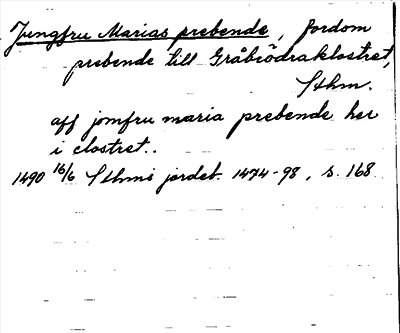 Jungfru Marias prebende, fordom
prebende till Gråbrödraklostret,
Sthm.
aff jomfru maria prebende her
i clostret..
1490 16/6 Sthms jordeb. 1474-98, s. 168